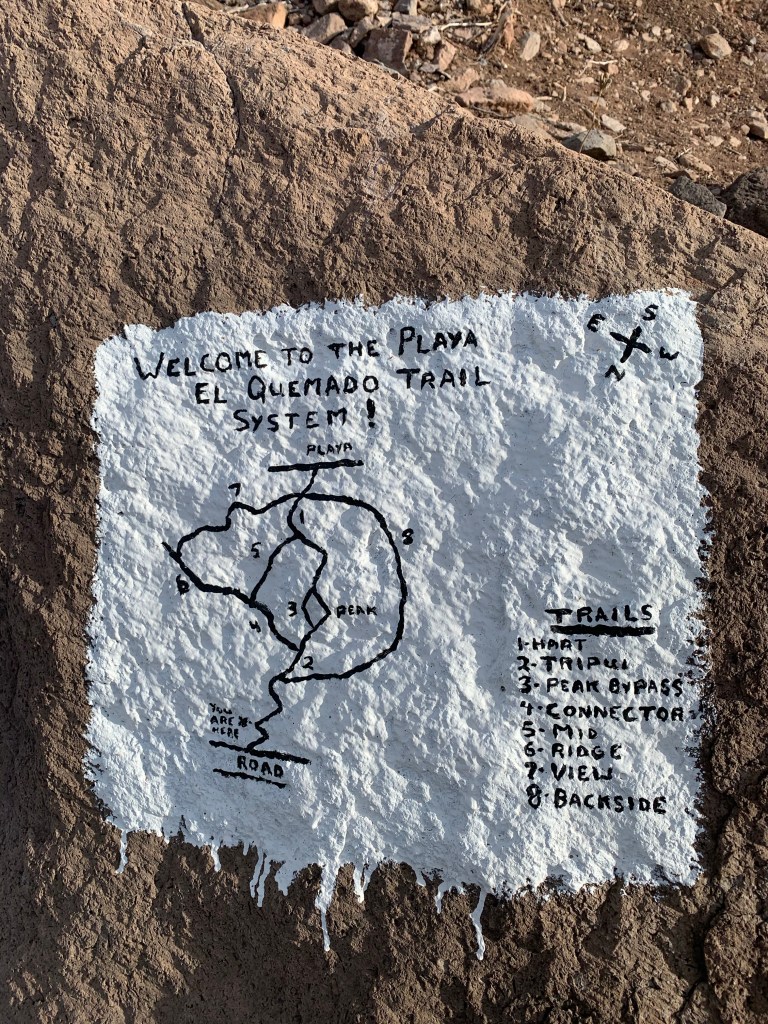 WELCOME TO THE PLAYA
EL QUEMADO TRAIL
SYSTEM!
E S
N W
PLAYA
7
1
8
5
6
3
PEAK
4
2
YOU
ARE
HERE
ROAD
TRAILS
1-HART
2-TRIPUI
3-PEAK BYPASS
4-CONNECTOR
5-MID
6-RIDGE
7-VIEW
8-BACKSIDE